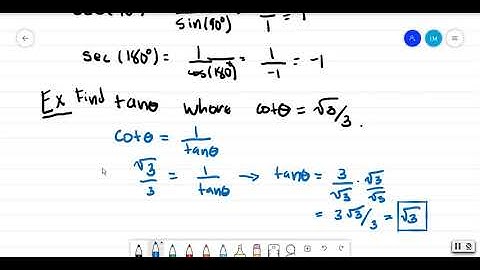 sin(90°) 1
sec (180°) = 1/cos(180°) = 1/-1 = -1
Ex Find tanθ where cotθ = √3/3.
cotθ = 1/tanθ
√3/3 = 1/tanθ → tanθ = 3/√3 · √3/√3
= 3√3/3 = √3
IM